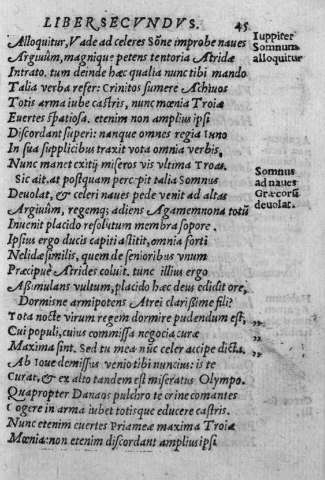 LIBER SECVNDVS. 45
Alloquitur, Vade ad celeres Sõne improbe naues
Iuppiter
Somnum
alloquitur
Argiuûm, magnique petens tentoria Atridæ
Intrato. tum deinde hæc qualia nunc tibi mando
Talia verba refer: Crinitos sumere Achiuos
Totis arma iube castris, nunc mœnia Troiæ
Euertes spatiosa. etenim non amplius ipsi
Discordant superi: nanque omnes regia Iuno
In sua supplicibus traxit vota omnia verbis,
Nunc manet exitij miseros vis vltima Troas.
Sic ait. at postquam percepit talia Somnus
Somnus
ad naues
Græcorũ
deuolat.
Deuolat, & celeri naues pede venit ad altas
Argiuûm, regemq; adiens Agamemnona totũ
Inuenit placido resolutum membra sopore.
Ipsius ergo ducis capiti astitit, omnia forti
Nelidæ similis, quem de senioribus vnum
Præcipuè Atrides coluit. tunc illius ergo
Assimulans vultum, placido hæc deus edidit ore,
Dormisne armipotens Atrei clarissime fili?
Tota nocte virum regem dormire pudendum est, ,,
Cui populi, cuius commissa negocia curæ ,,
Maxima sint. Sed tu mea nũc celer accipe dicta. ,,
Ab Ioue demissus venio tibi nuncius: is te
Curat, & ex alto tandem est miseratus Olympo.
Quapropter Danaos pulchro te crine comantes
Cogere in arma iubet totisque educere castris.
Nunc etenim euertes Priameæ maxima Troiæ
Mœnia: non etenim discordant amplius ipsi